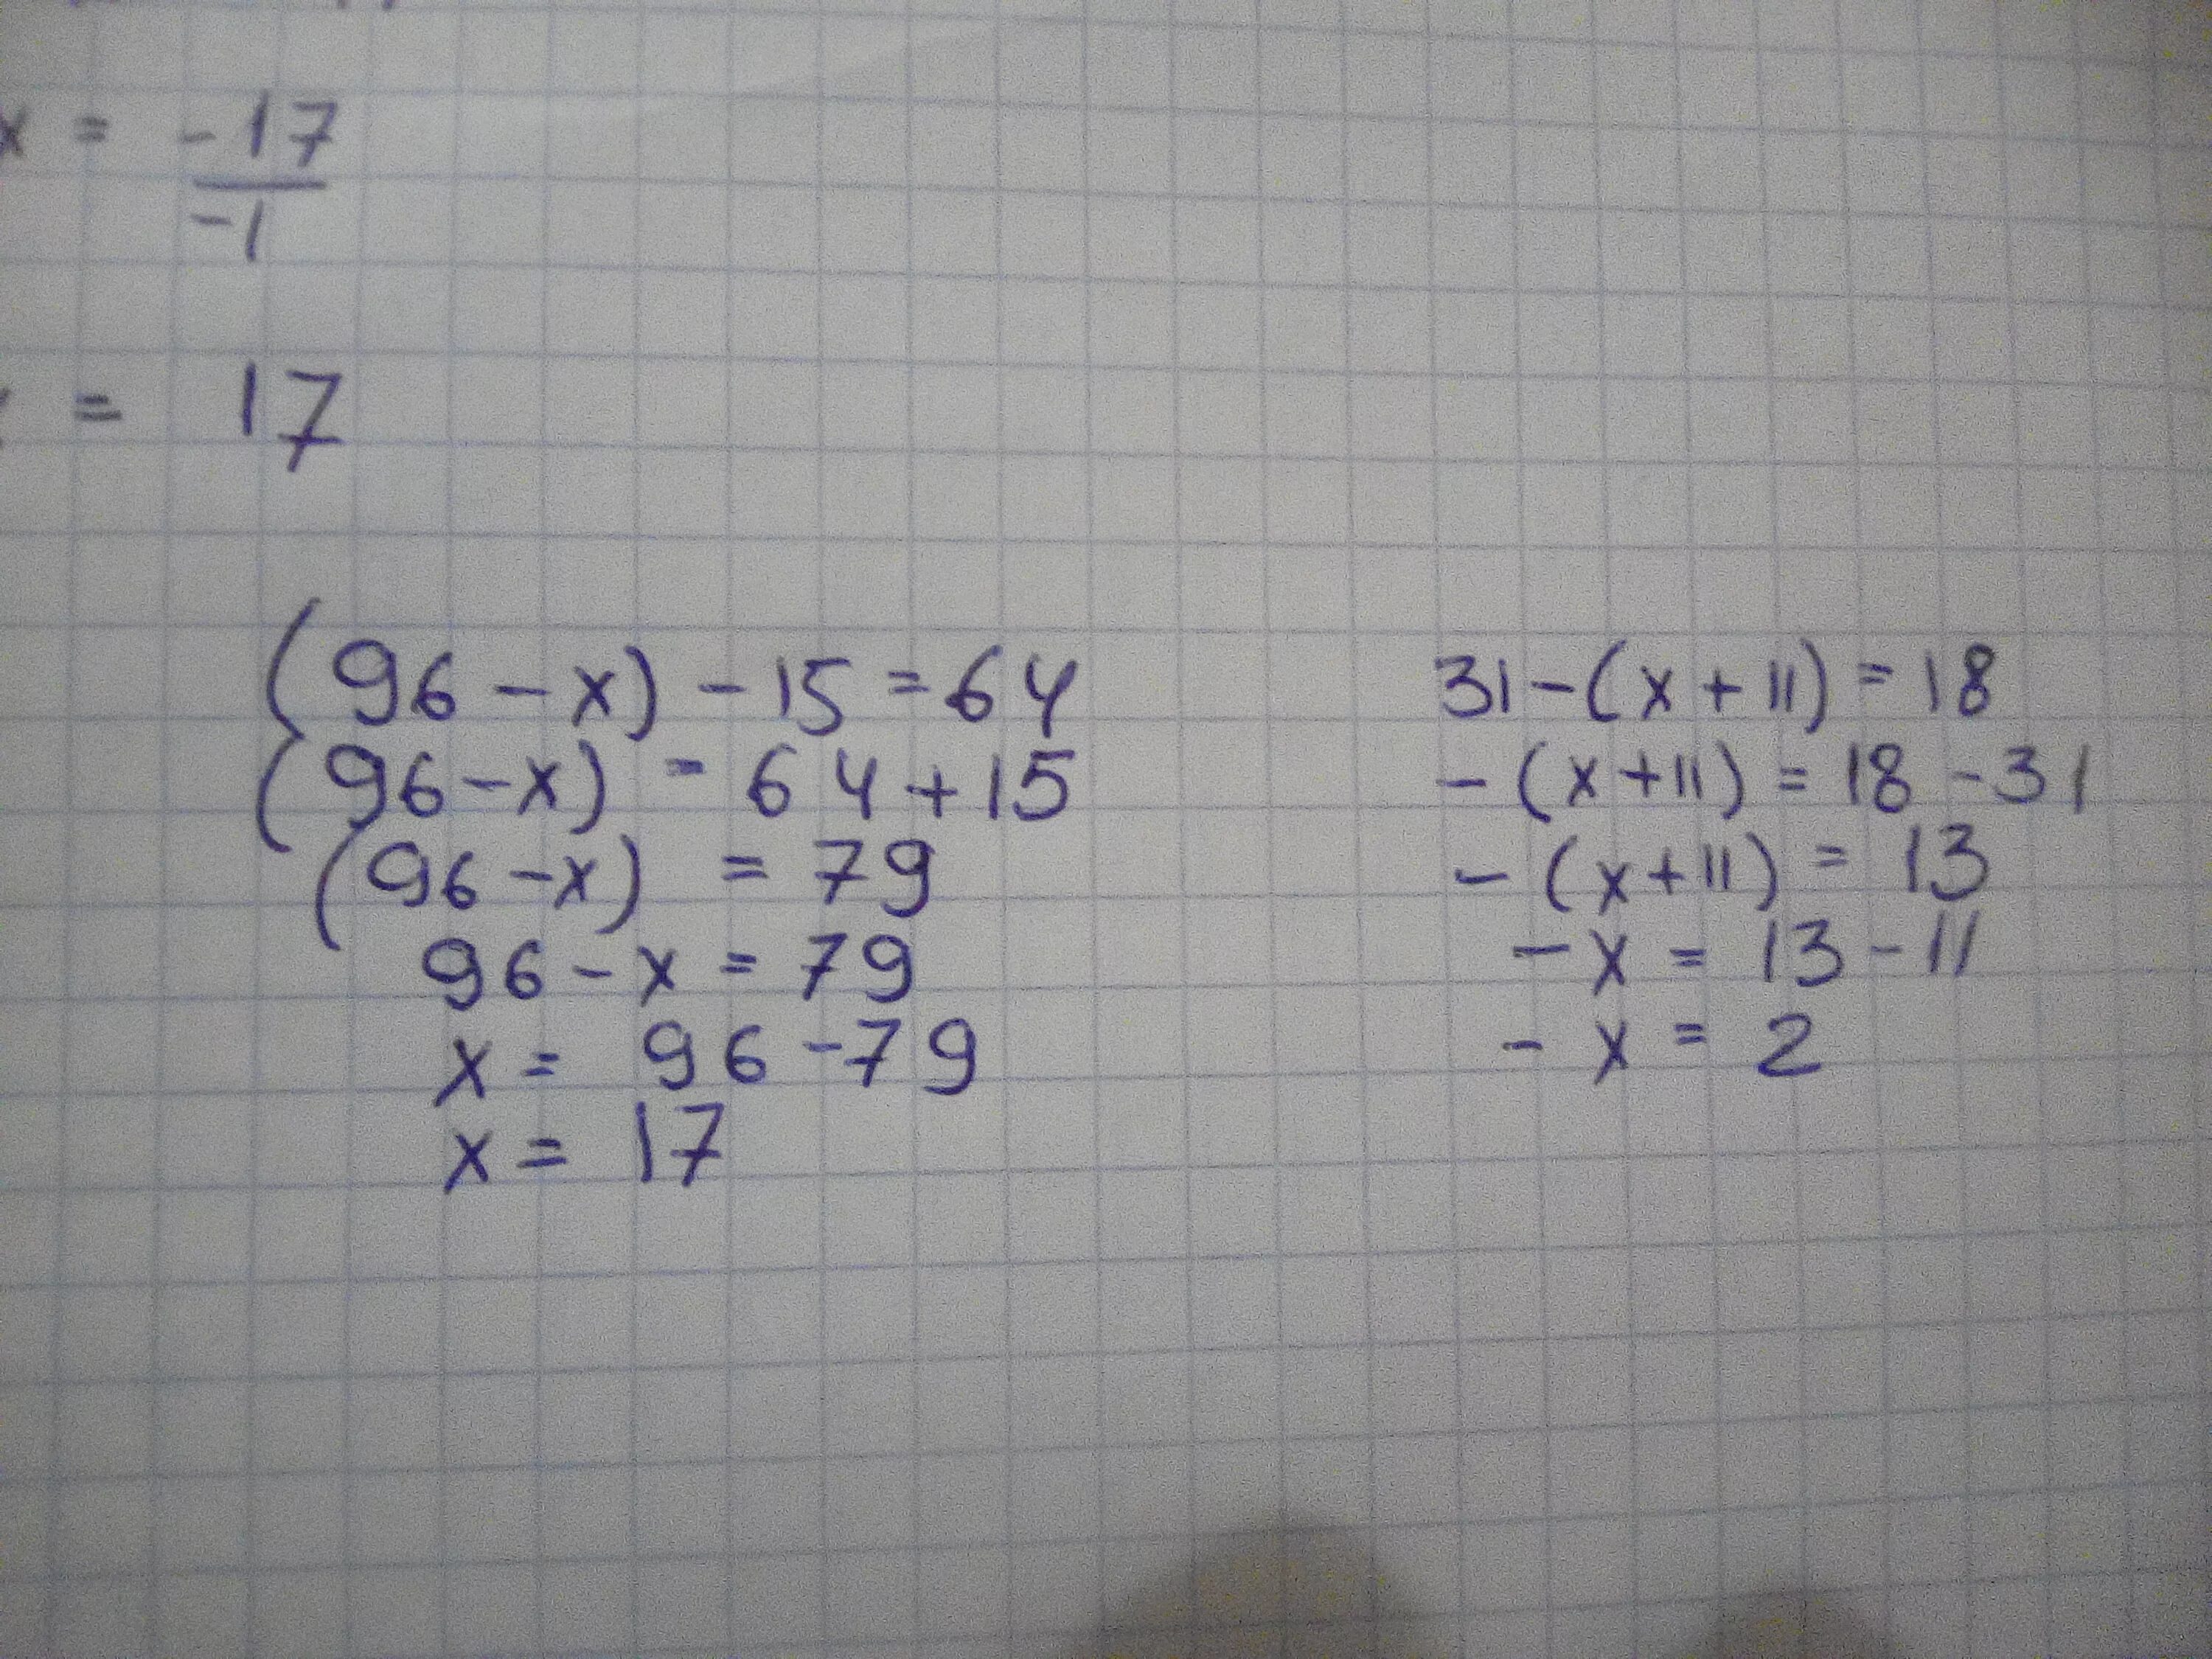 x = -17
-1
= 17
(96 - x) - 15 = 64
(96 - x) = 64 + 15
(96 - x) = 79
96 - x = 79
x = 96 - 79
x = 17
31 - (x + 11) = 18
- (x + 11) = 18 - 31
- (x + 11) = 13
- x = 13 - 11
- x = 2